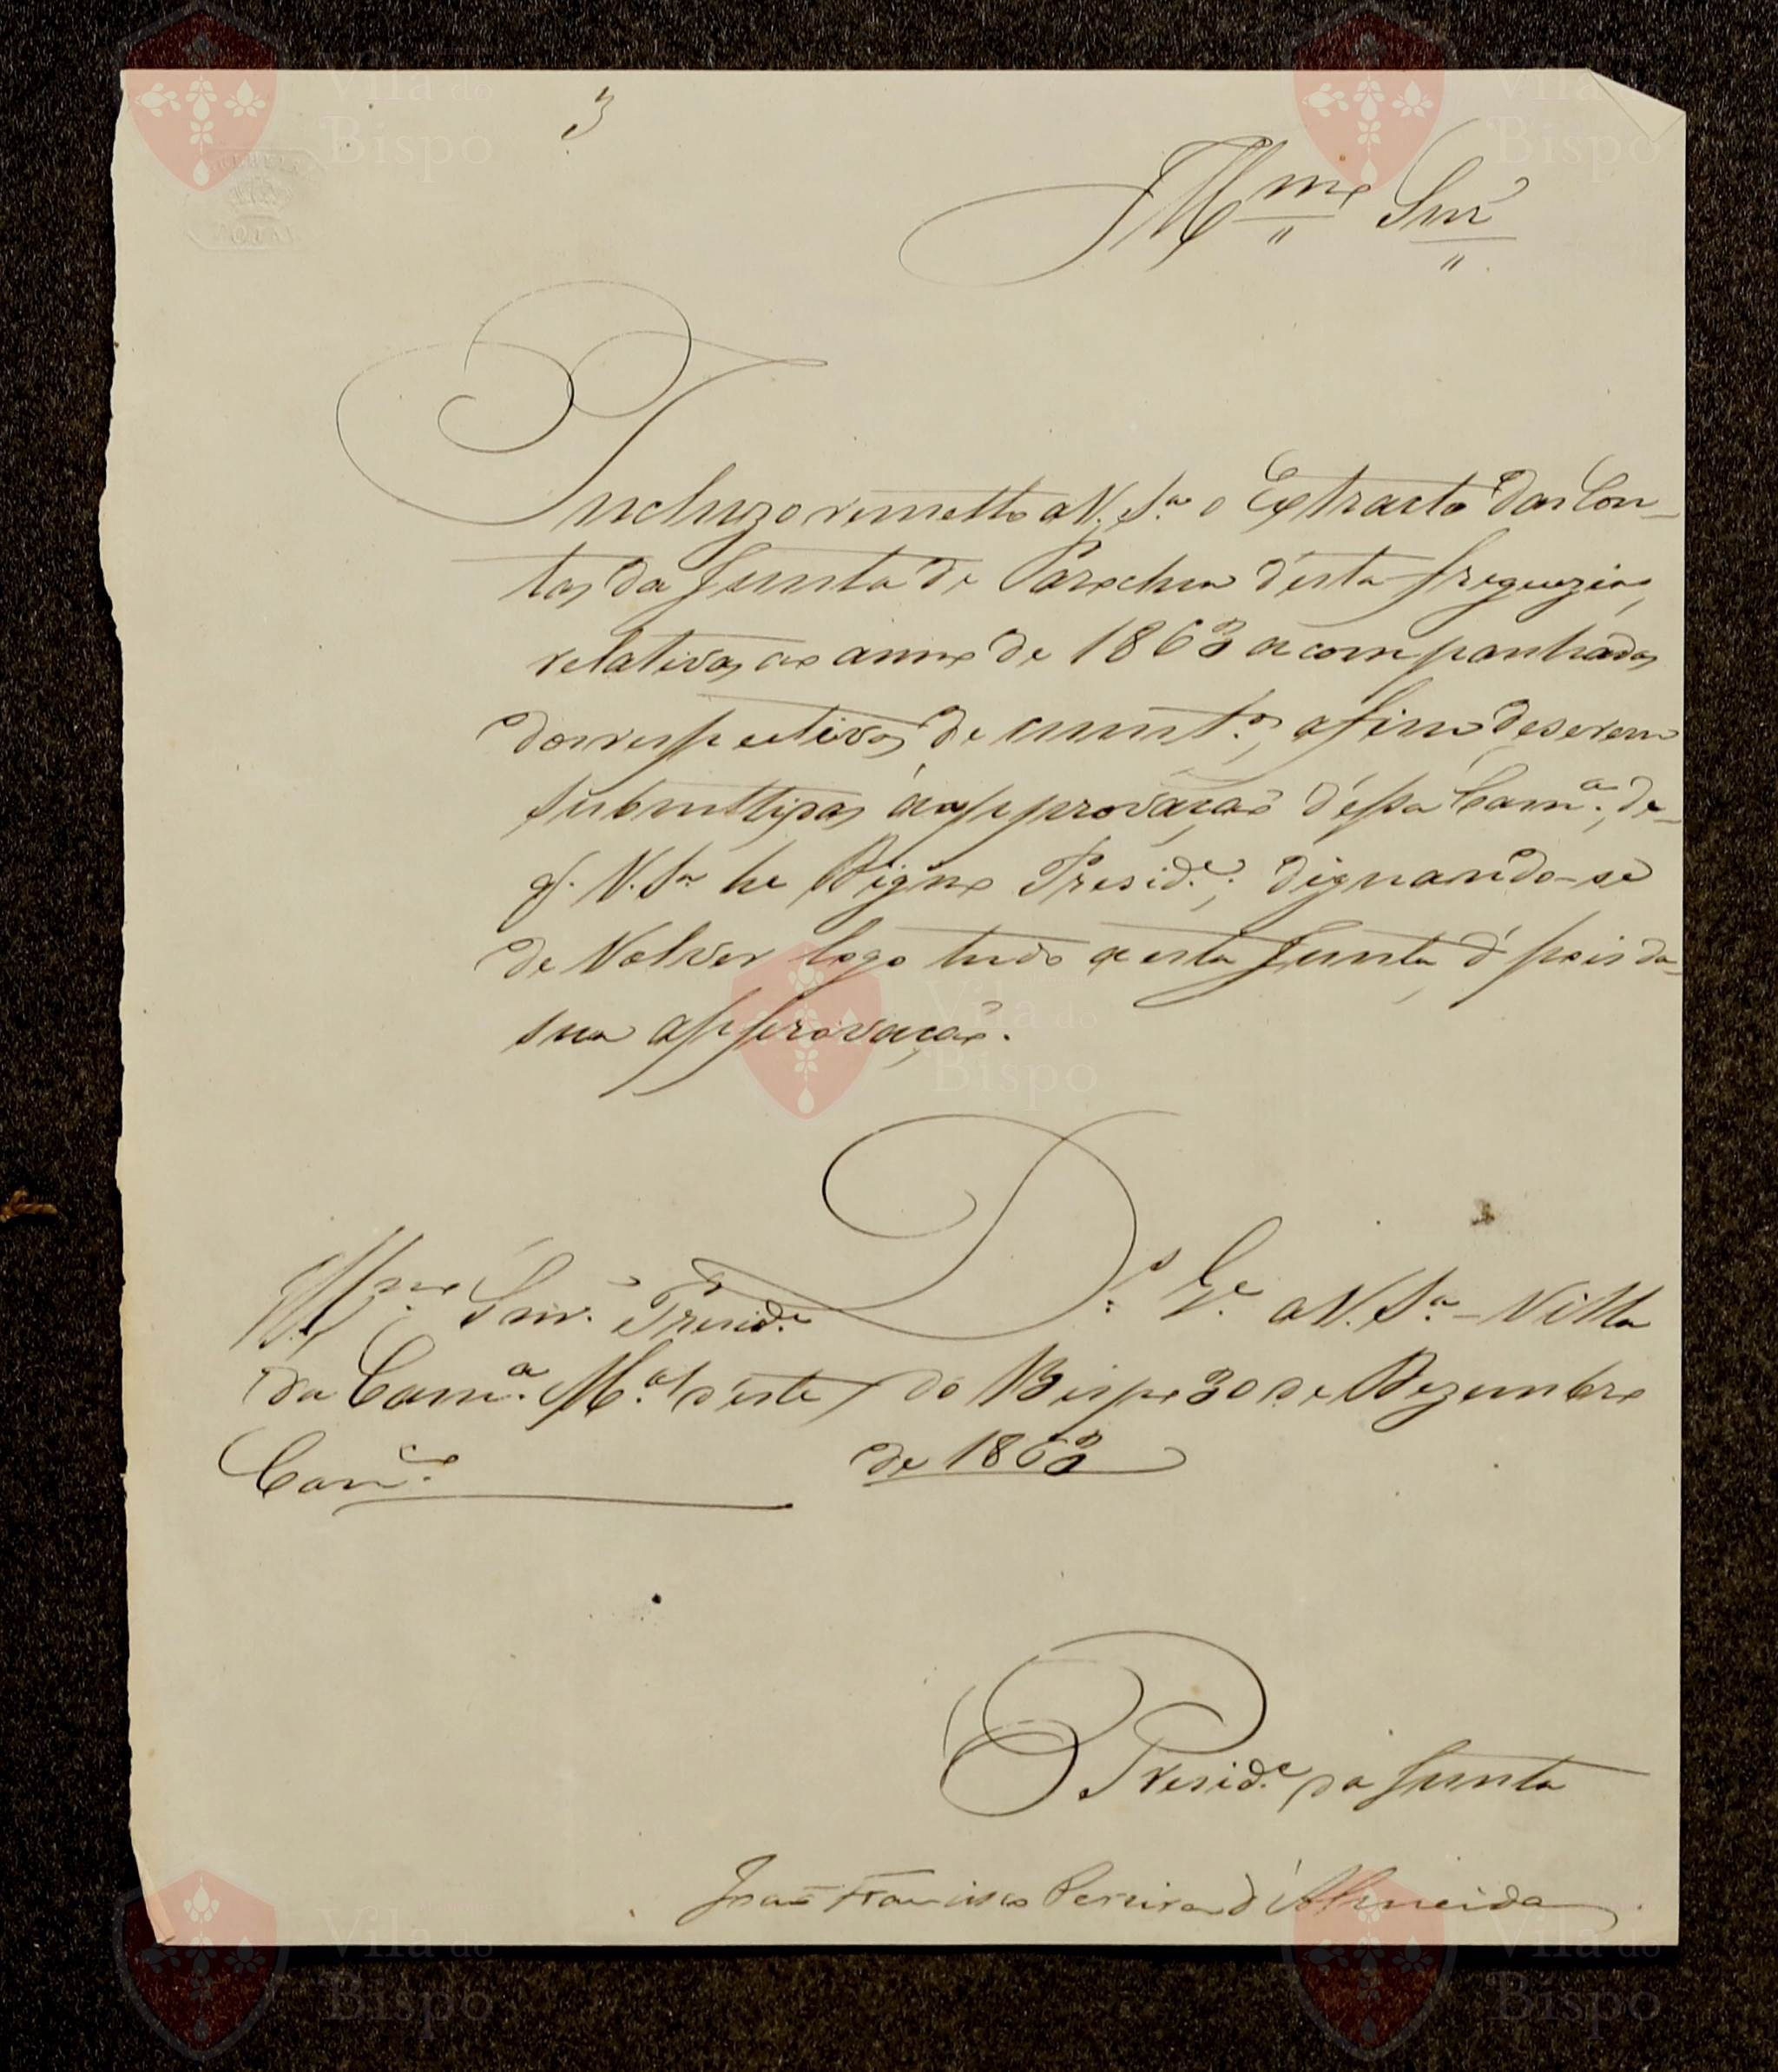 3
Illmo Snr
Incluzo remetto a V. Sa o Extracto das Con-
tas da Junta de Parochia d'esta freguezia,
relativas ao anno de 1863 acompanhadas
dos respectivos documtos, afim de serem
submettidas á approvação d'essa Camª., de
q. V. Sa he Digno Preside.; dignando-se
de Volver logo tudo a esta Junta, d'pois da
sua approvação.
Ds. Ge. a V. Sa - Villa
do Bispo 30 de Dezembro
de 1863
Illmo. Snr. Preside.
da Camª. Mal d'este
Conco.
O Preside. da Junta
João Francisco Pereira d'Almeida
Vila do
Bispo
Vila do
Bispo
Vila do
Bispo
Vila do
Bispo
Vila do
Bispo